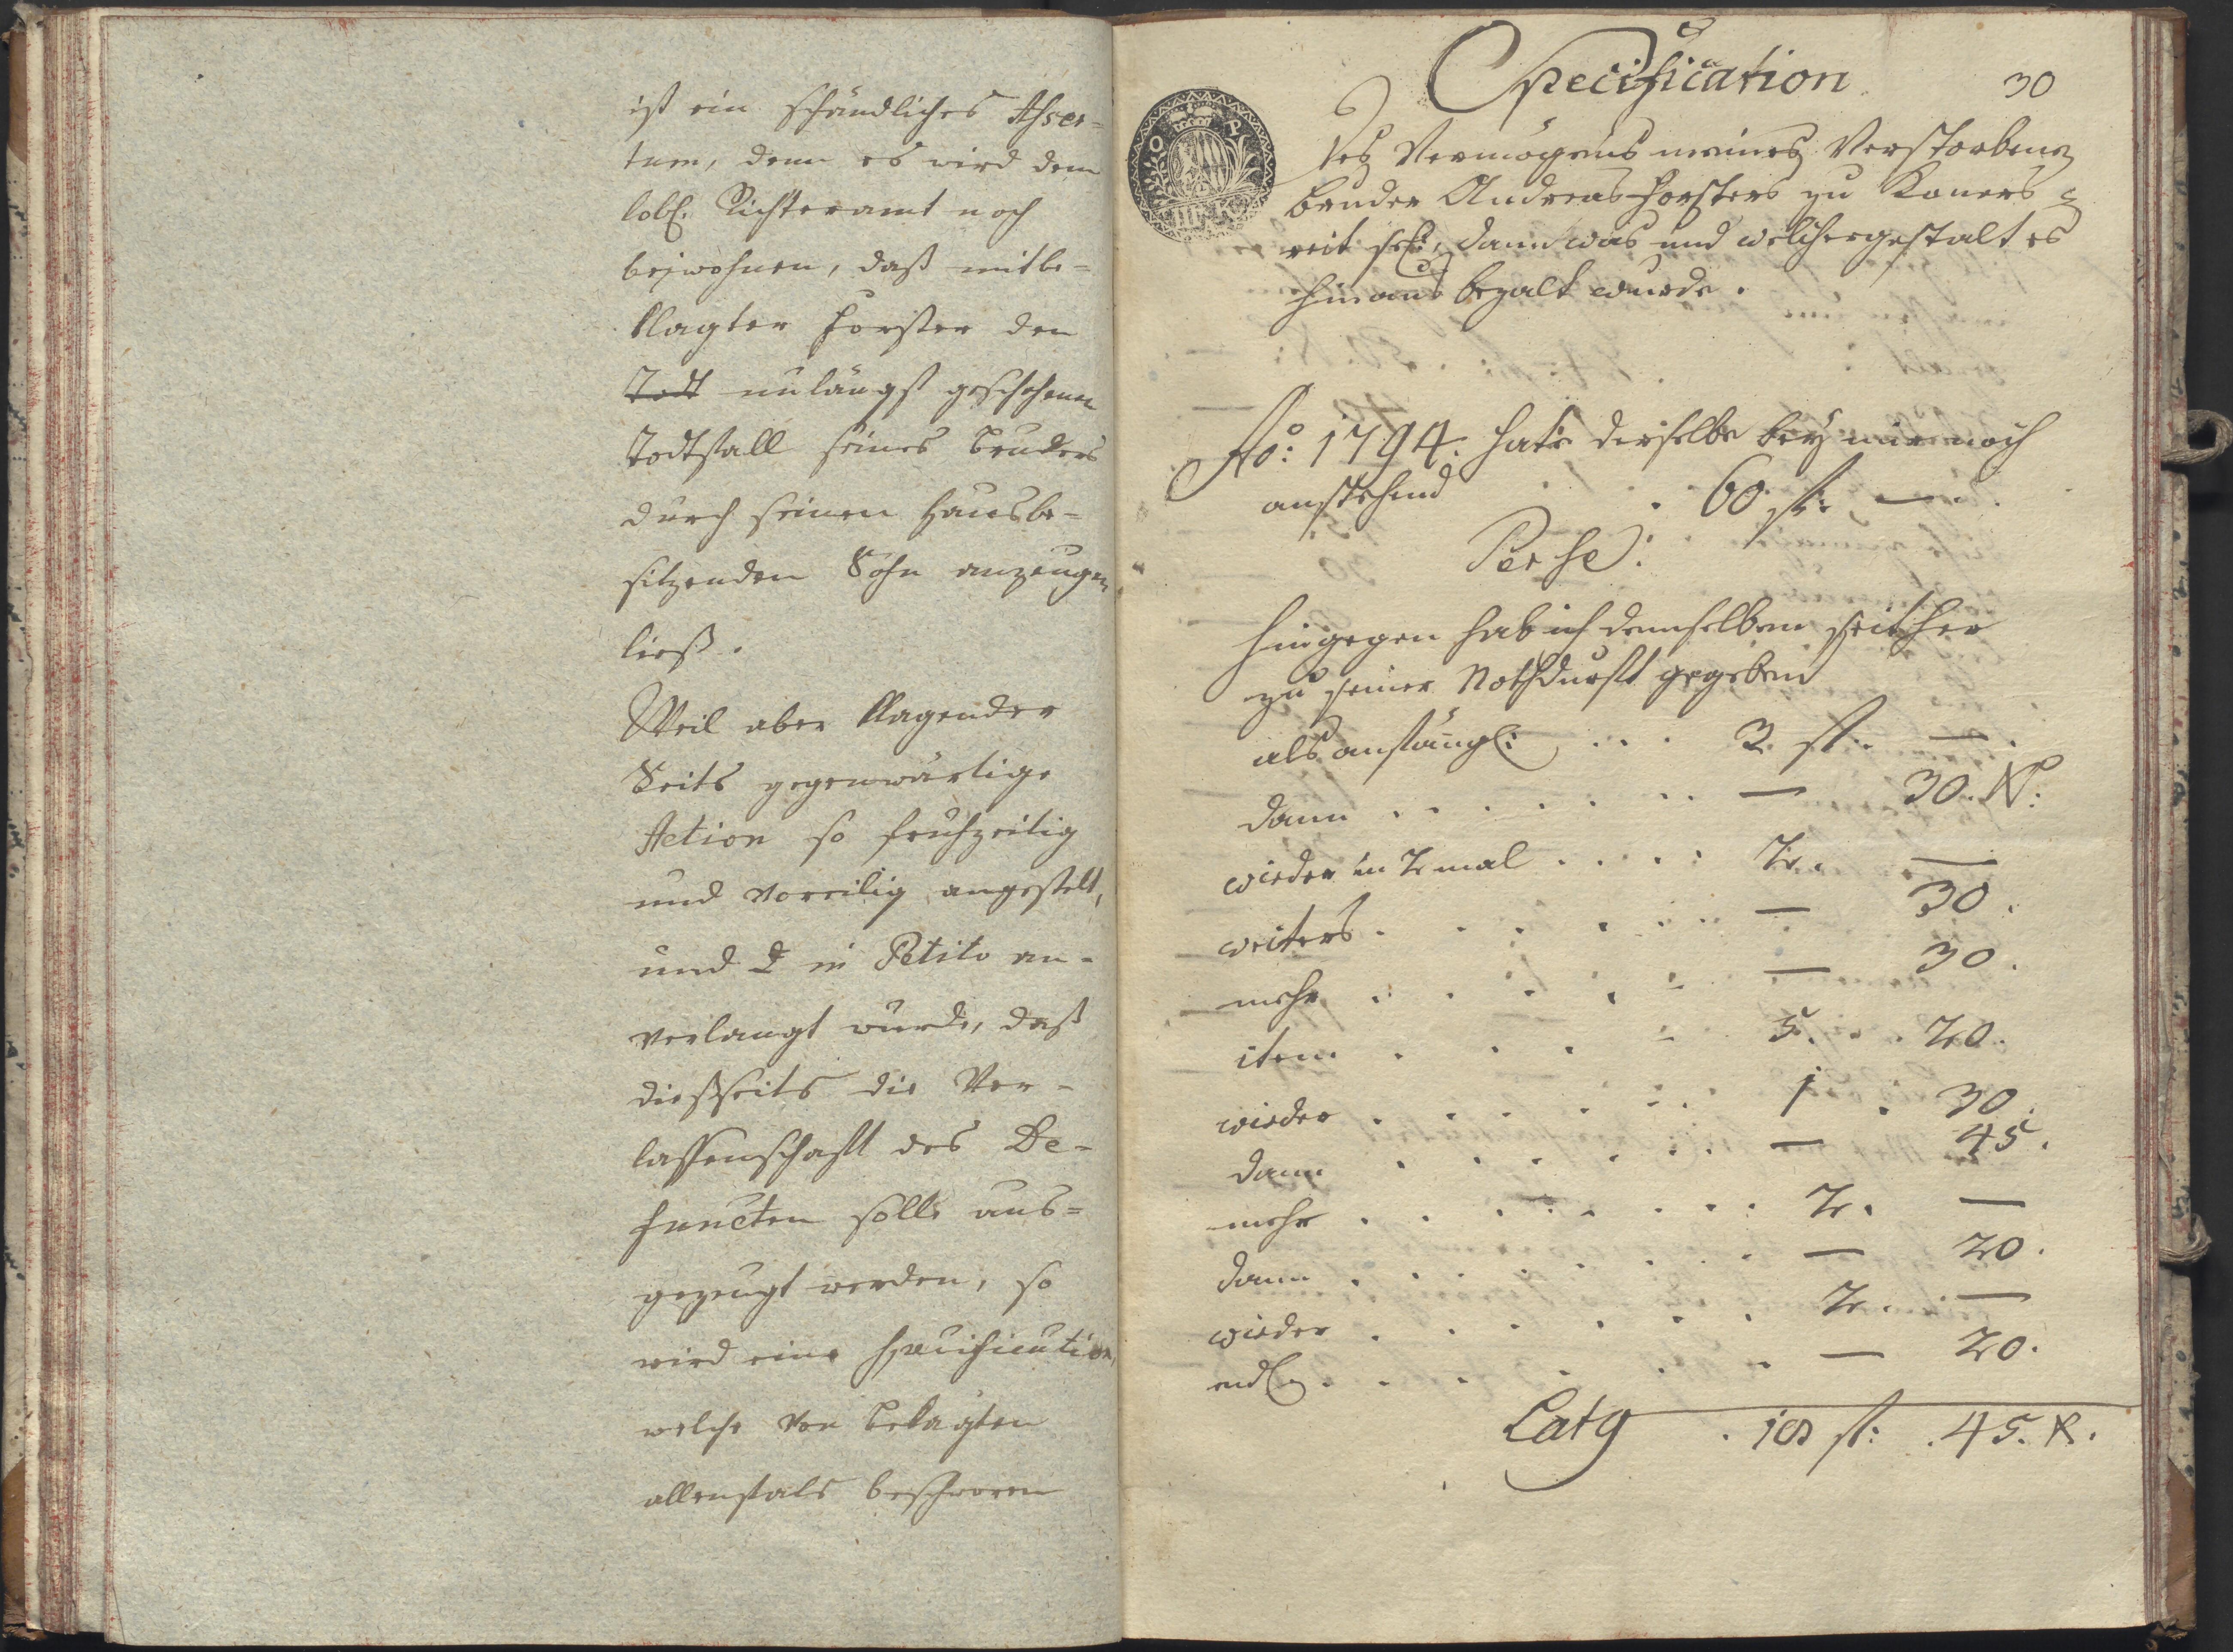 ist ein schändliches Asser-
tum, denn es wird dem
löbl. Richteramt noch
beiwohnen, daß mitbe-
klagter Forster den
Todt unlängst geschehenen
Todtfall seines Bruders
durch seinen Hausbe-
sitzenden Sohn anzeugen
ließ.
Weil aber klagender
Seits gegenwärtige
Action so fruhzeitig
und voreilig angestelt,
und in Petito an-
verlangt wurde, daß
dießseits die Ver-
lassenschaft des De-
functen solle aus-
gezeugt werden, so
wird eine Specification,
welche von Beklagten
allenfals beschworen
Specification
30
O P
III K
des Vermögens meines Verstorbenen
Bruder Andreas Forsters zu
reit sel:, dann was und welchergestalt es
hinaus bezalt wurde.
Ao: 1794. hate derselbe bey mir noch
anstehend . 60 fl: —
Per se:
Hingegen hab ich demselben seither
zu seiner Nothdurft gegeben
als anfängl: . . . 3. fl: —
dann . . . . . . — 30. Kr:
wieder in 2 mal . . . . 2. —
weiters . . . . . . — 30.
mehr . . . . . — 30.
item . . . . 5. . . 20.
wieder . . . . . . 1 . 30.
dann . . . . . . — 45.
mehr . . . . . . . . 2. —
dann . . . . . . . . — 20.
wieder . . . . . . 2. —
endl. . . . . . — 20.
Latg . 18 fl: . 45. Kr.